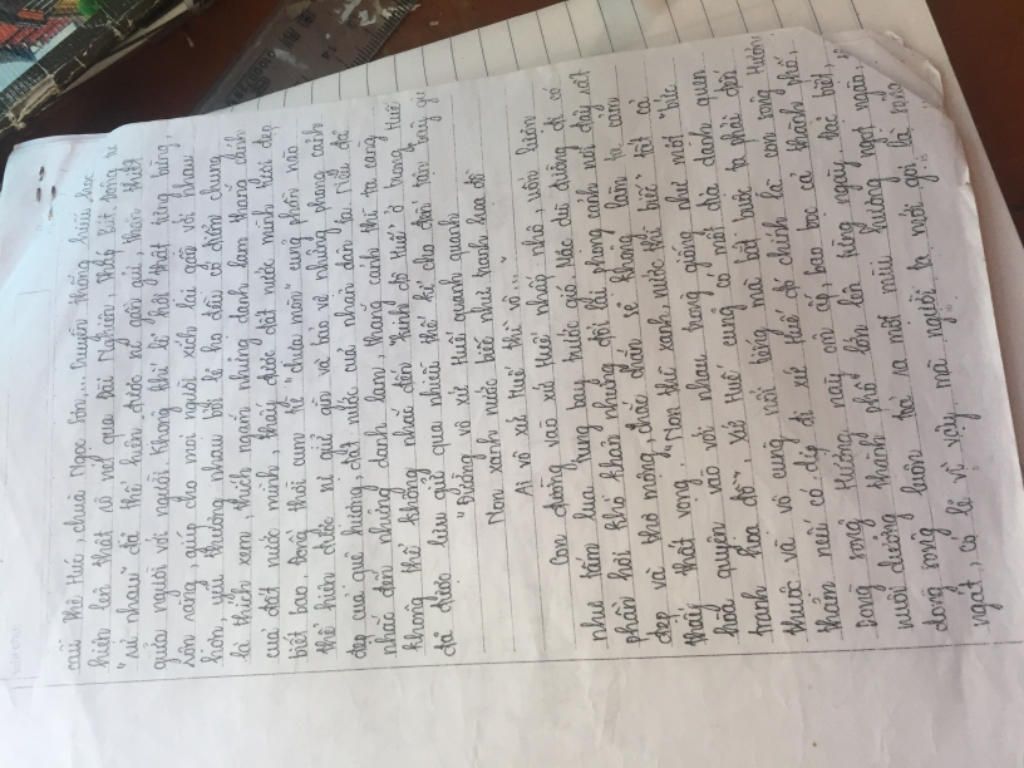 mũ Thê Húc, chùa Ngọc Sơn,... truyền thống hiếu học
hiện lên thật rõ nét qua Đài Nghiên, Tháp Bút. Động từ
"rủ nhau" đã thể hiện được sự gần gũi, thân thiết
giữa người với người. Không khí lễ hội thật tưng bừng,
rộn ràng, giúp cho mọi người xích lại gần với nhau
hơn, yêu thương nhau bởi lẽ họ đều có điểm chung
là thích xem, thích ngắm những danh lam thắng cảnh
của đất nước mình, thấy được đất nước mình tươi đẹp
biết bao, đồng thời cụm từ "chưa mòn" cũng phần nào
thể hiện được sự giữ gìn và bảo vệ những phong cảnh
đẹp của quê hương, đất nước của nhân dân ta. Nếu đã
nhắc đến những danh lam, thắng cảnh thì ta càng
không thể không nhắc đến "kinh đô Huế" ở trung Huế
đã được lưu giữ qua nhiều thế kỉ cho đến tận bây giờ
"Đường vô xứ Huế quanh quanh
Non xanh nước biếc như tranh họa đồ
Ai vô xứ Huế thì vô..."
Con đường vào xứ Huế nhấp nhô, uốn lượn
như tấm lụa tung bay trước gió. Mặc dù đường đi có
phần hơi khó khăn nhưng đổi lại phong cảnh nơi đây rất
đẹp và thơ mộng, chắc chắn sẽ không làm ta cảm
thấy thất vọng. Non thì xanh, nước thì biếc tất cả
hòa quyện vào với nhau trông giống như một "bức
tranh họa đồ", xứ Huế cũng có một địa danh quen
thuộc và vô cùng nổi tiếng mà bắt buộc ta phải đến
thăm nếu có dịp đi xứ Huế đó chính là con sông Hương
Dòng sông Hương này ôm ấp, bao bọc cả thành phố,
nuôi dưỡng thành phố lớn lên từng ngày. Đặc biệt,
dòng sông luôn toả ra một mùi hương ngọt ngào,
ngát, có lẽ vì vậy, mà người ta mới gọi là sông